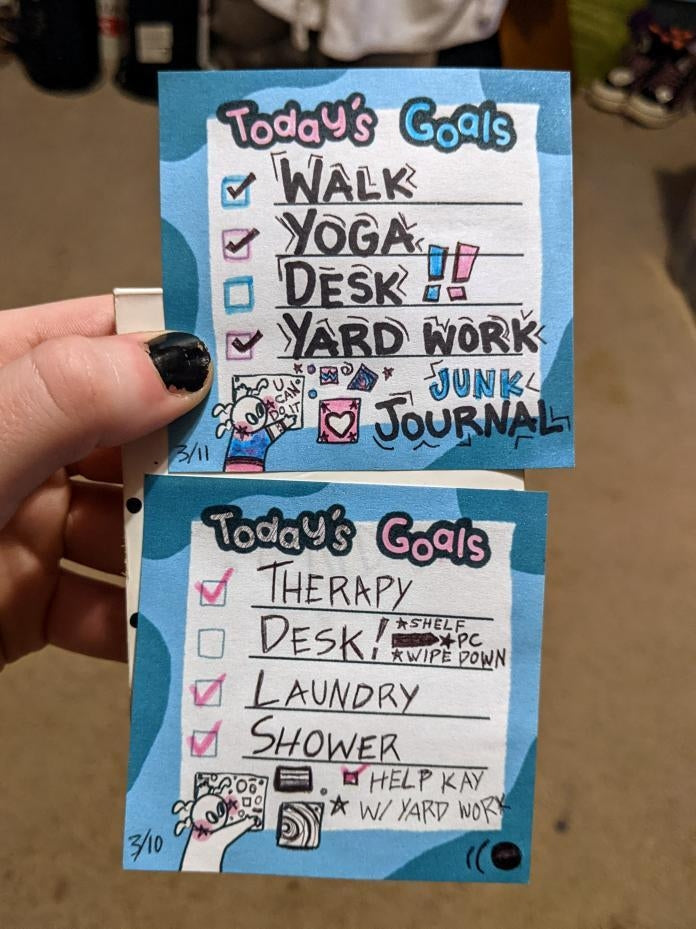 Today's Goals
WALK
YOGA
DESK !!
YARD WORK
U CAN DO IT
JUNK
JOURNAL
3/11
Today's Goals
THERAPY
DESK! ★SHELF
★PC
★WIPE DOWN
LAUNDRY
SHOWER
HELP KAY
★ W/ YARD WORK
3/10